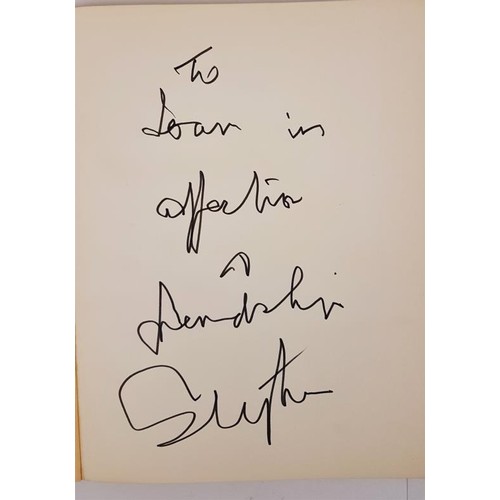 To
Joan in
affection
&
friendship